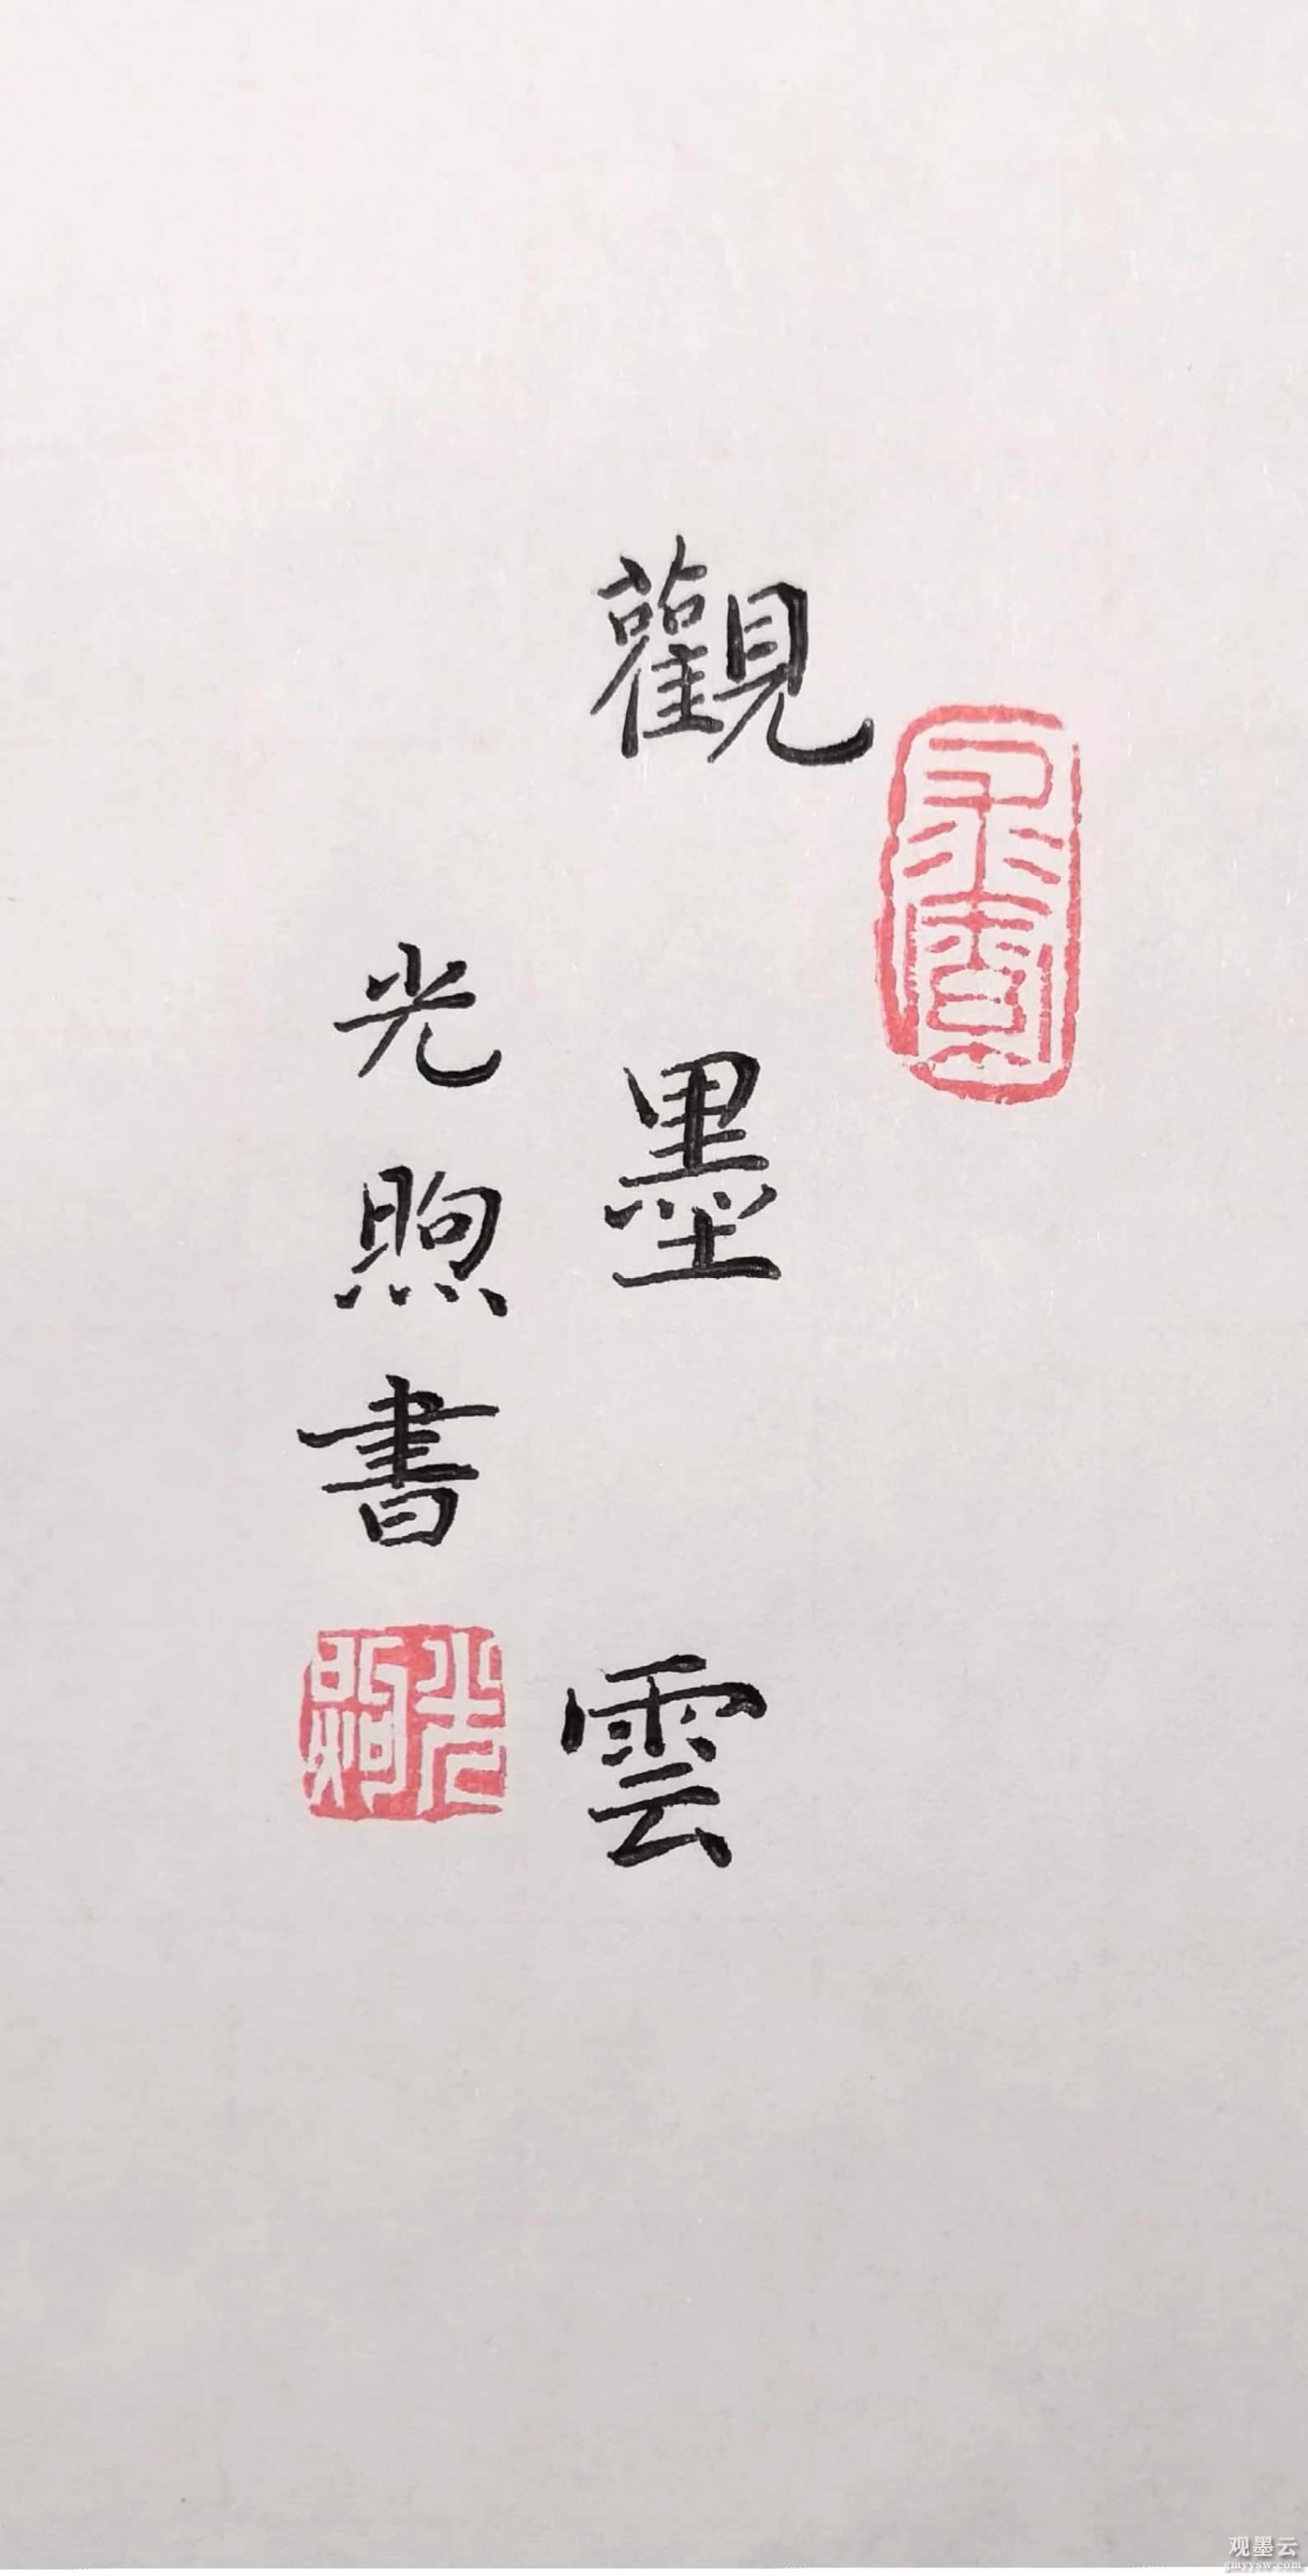 觀墨雲
光煦書
光煦
观墨云
gmyysw.com